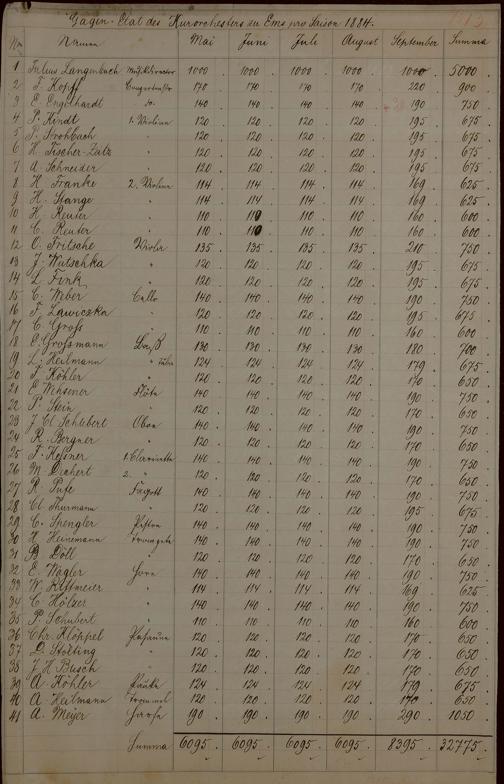 Gagen-Etat des Kurorchesters zu Ems pro Saison 1884.
No. Namen Mai Juni Juli August September Summa
1 Julius Langenbach Musikdirector 1000 1000 1000 1000 1000 5000
2 J. Kopff Concertmstr 170 170 170 170 220 900
3 E. Engelhardt do. 140 140 140 140 190 750
4 P. Kindt 1. Violinen 120 120 120 120 195 675
5 P. Strohbach " 120 120 120 120 195 675
6 H. Fischer-Zatz " 120 120 120 120 195 675
7 A. Schneider " 120 120 120 120 195 675
8 H. Franke 2. Violinen 114 114 114 114 169 625
9 H. Stange " 114 114 114 114 169 625
10 H. Reuter " 110 110 110 110 160 600
11 C. Reuter " 110 110 110 110 160 600
12 O. Fritsche Viola 135 135 135 135 210 750
13 J. Wutschka " 120 120 120 120 195 675
14 L. Fink " 120 120 120 120 195 675
15 C. Weber Cello 140 140 140 140 190 750
16 F. Zawiczka " 120 120 120 120 195 675
17 C. Groß " 110 110 110 110 160 600
18 E. Großmann Baß 130 130 130 130 180 700
19 L. Heilmann " Tuba 124 124 124 124 179 675
20 F. Köhler " 120 120 120 120 170 650
21 E. Wehsener Flöte 140 140 140 140 190 750
22 P. Stein " 120 120 120 120 170 650
23 J. Cl. Schubert Oboe 140 140 140 140 190 750
24 R. Bergner " 120 120 120 120 170 650
25 F. Heßner 1. Clarinette 140 140 140 140 190 750
26 M. Dichert 2. " 120 120 120 120 170 650
27 R. Pufe Fagott 140 140 140 140 190 750
28 Cl. Thurmann " 120 120 120 120 195 675
29 C. Spengler Piston 140 140 140 140 190 750
30 H. Heinemann Trompete 140 140 140 140 190 750
31 B. Döll " 120 120 120 120 170 650
32 E. Wagler Horn 140 140 140 140 190 750
33 W. Rittmeier " 114 114 114 114 169 625
34 C. Hölzer " 140 140 140 140 190 750
35 P. Schubert " 110 110 110 110 160 600
36 Chr. Klöppel Posaune 120 120 120 120 170 650
37 D. Stolting " 120 120 120 120 170 650
38 J. H. Busch " 120 120 120 120 170 650
39 A. Köhler Pauke 124 124 124 124 179 675
40 A. Heilmann Trommel 120 120 120 120 170 650
41 A. Meyer Harfe 190 190 190 190 290 1050
Summa 6095 6095 6095 6095 8395 32775